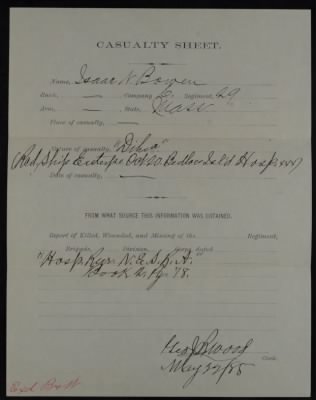 CASUALTY SHEET.
Name, Isaac N Bowen
Rank, — Company E, Regiment, 29
Arm, — State, Mass
Place of casualty, —
Nature of casualty, "Debia"
Ship Enterpe Oct 20. Bedloe Isl'd Hosp
Date of casualty, —
FROM WHAT SOURCE THIS INFORMATION WAS OBTAINED.
Report of Killed, Wounded, and Missing of the Regiment,
Brigade, Division, Corps, dated
"Hosp. Rgr. N. E. S. R. A."
Book 2. Pg. 78.
Wood
Clerk.
May 22/85